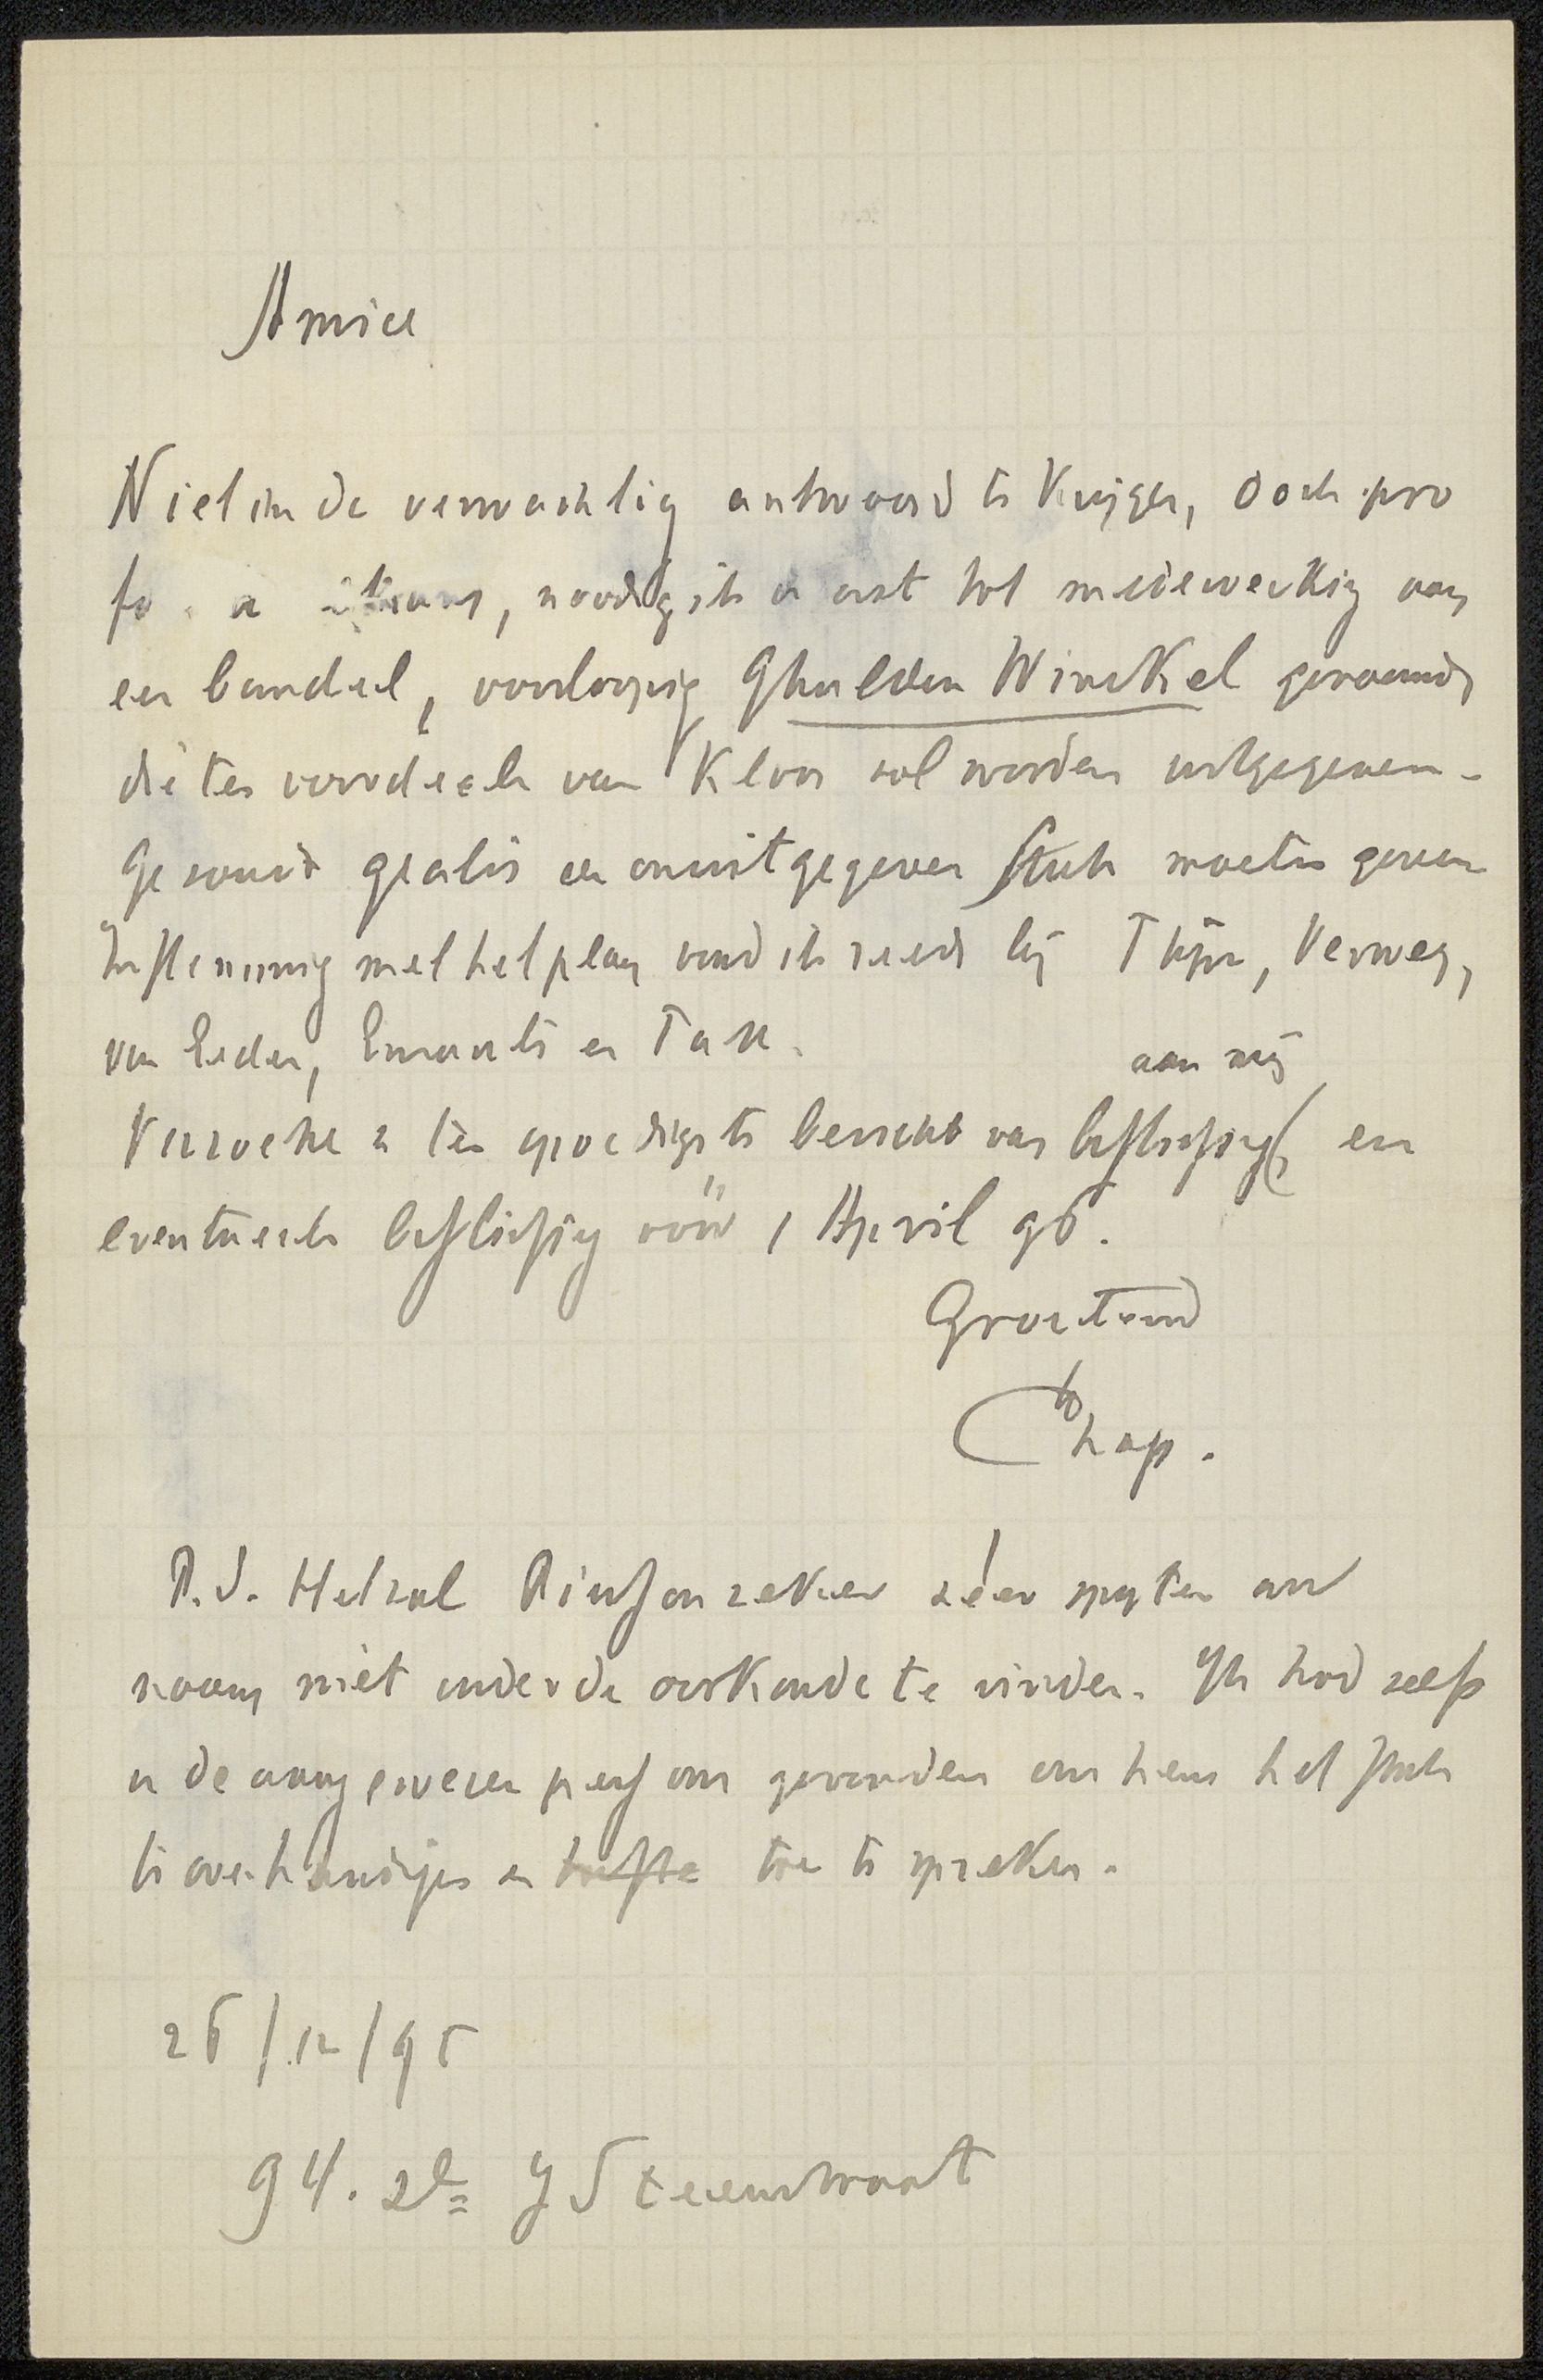 Amice
Niet in de verwachting antwoord te krijgen, doch pro
noodig ik u uit tot medewerking aan
een bundel, voorloopig Ghulden Winckel genaamd,
die ten voordeele van Kloos zal worden uitgegeven.
Ge zoudt gratis een onuitgegeven stuk moeten geven
Instemming met het plan vond ik reeds bij Thijm, Verwey,
van Eeden, Emants en Tak.
aan mij
Verzoeke u ten spoedigste bericht van beslissing, en
eventueele beslissing vóór 1 April 96.
Groetend
Chap.
P.S. Het zal zeker zéér spijten uw
naam niet onder de oorkonde te vinden. Ik had zelfs
u de aangewezen persoon gevonden om hem het stuk
te overhandigen en toe te spreken.
26/12/95
94. 2e J Steenstraat